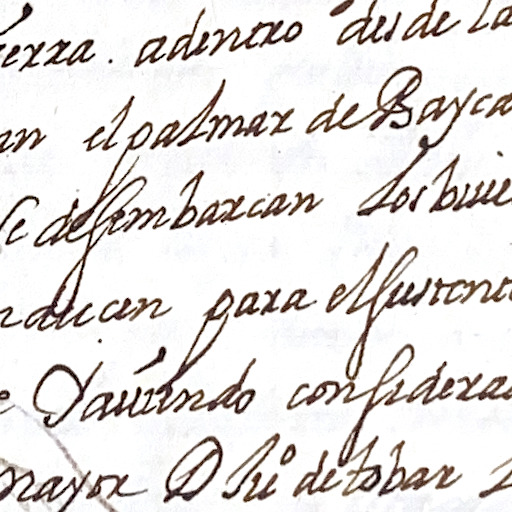 ierra. adentro desde la
an el palmar de Bayca
se desembarcan los bive
nducen para el sustent
e Y aviendo considera
mayor D Luº de tobar